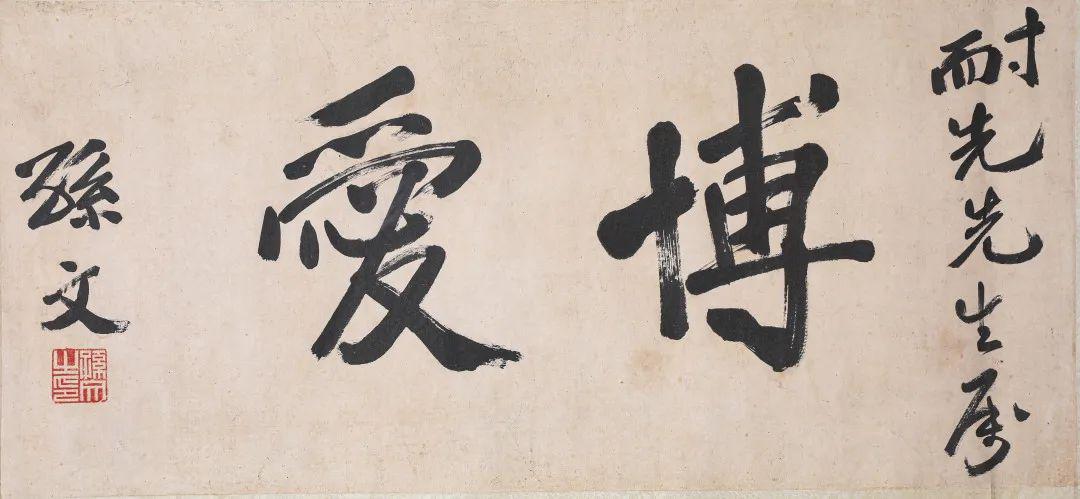 耐先先生属
博愛
孫文
孫文之印